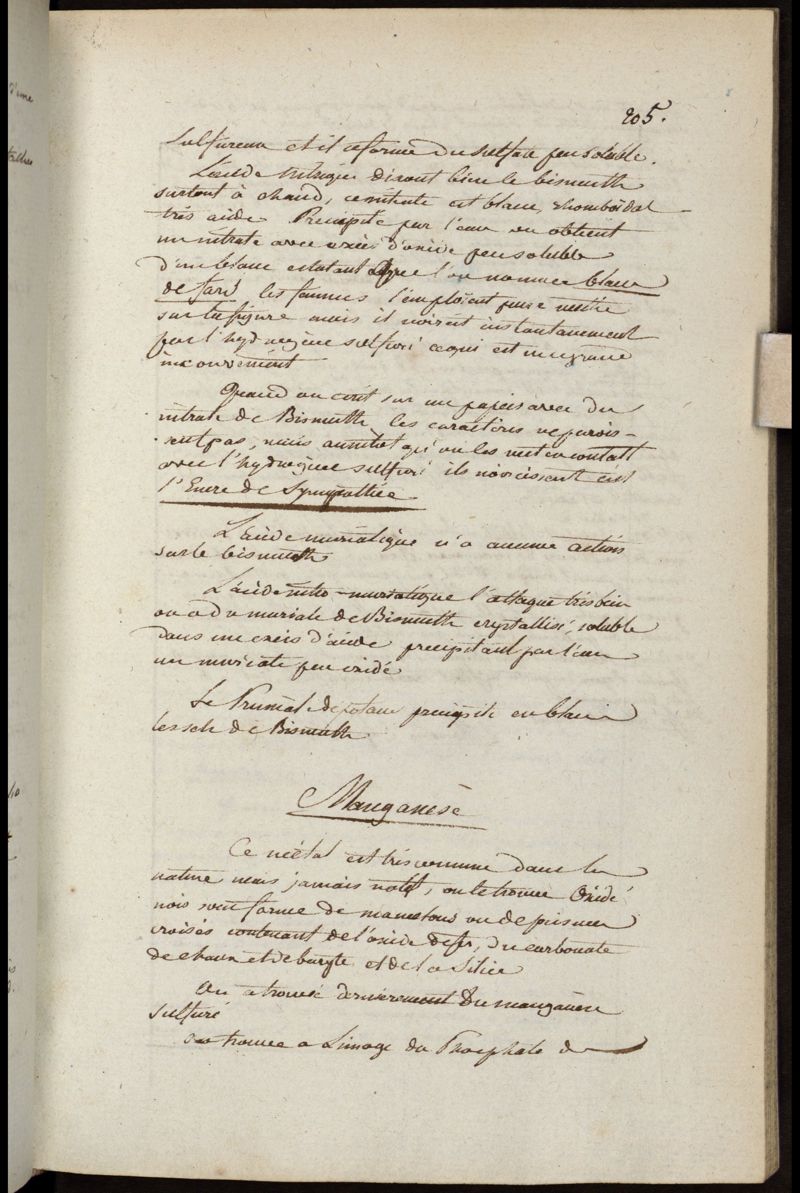 205.
Sulfureux et il se forme du sulfate peu soluble.
L'acide nitrique dissout bien le bismuth
surtout à chaud, ce nitrate est blanc, rhomboïdal
très acide Precipité par l'eau on obtient
un nitrate avec excès d'oxide peu soluble
d'un blanc eclatant que l'on nomme blanc
de fard les femmes l'emploient pour mettre
sur la figure mais il noircit instantanement
par l'hydrogène sulfuré ce qui est un grand
inconvenient
Quand on ecrit sur un papier avec du
nitrate de Bismuth les caractères ne parois-
sent pas, mais aussitot qu'on les met en contact
avec l'hydrogène sulfuré ils noircissent c'est
l'Encre de Sympathie
L'acide muriatique n'a aucune action
sur le bismuth
L'acide nitro-muriatique l'attaque très bien
on a du muriate de Bismuth crystallisé, soluble
dans un excès d'acide precipitant par l'eau
un muriate peu oxidé
Le Prussiate de potasse precipite en blanc
les sels de Bismuth
Manganèse
Ce métal est très commun dans la
nature mais jamais natif, on le trouve oxidé
noir sous forme de mamelons ou de prismes
croisés contenant de l'oxide de fer, du carbonate
de chaux et de baryte et de la Silice
On a trouvé dernierement du manganèse
sulfuré
On trouve a Limoge du Phosphate de
d'une